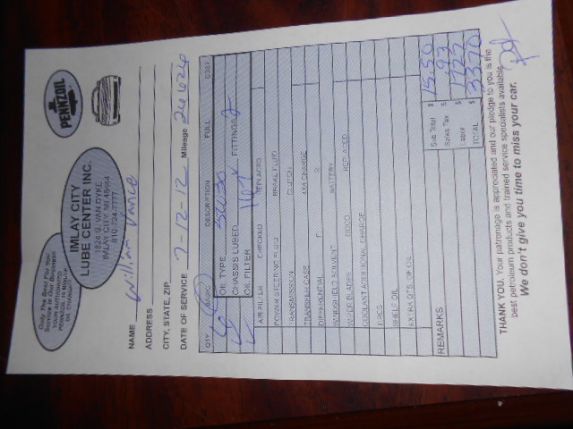 Only The Best For You
PENNZOIL
IMLAY CITY
LUBE CENTER INC.
1824 S. VAN DYKE
IMLAY CITY, MI 48444
810-724-7777
NAME William Vance
ADDRESS
CITY, STATE, ZIP
DATE OF SERVICE 7-12-12 Mileage 26626
QTY. DESCRIPTION FULL COST
OIL TYPE 5W30
CHASSIS LUBED FITTINGS 2
OIL FILTER
AIR FILTER CHECKED REPLACED
POWER STEERING FLUID BRAKE FLUID
TRANSMISSION CLUTCH
TRANSFER CASE
DIFFERENTIAL F R
WINDSHIELD SOLVENT BATTERY
WIPER BLADES GOOD REPLACED
COOLANT ADDITIONAL CHARGE
TIRES
SHELL OIL
EXTRA QTS. OF OIL
REMARKS
Sub Total $ 15.50
Sales Tax $ .93
$ 17.27
TOTAL $ 33.70
THANK YOU. Your patronage is appreciated and our pledge to you is the
best petroleum products and trained service specialists available.
We don't give you time to miss your car.